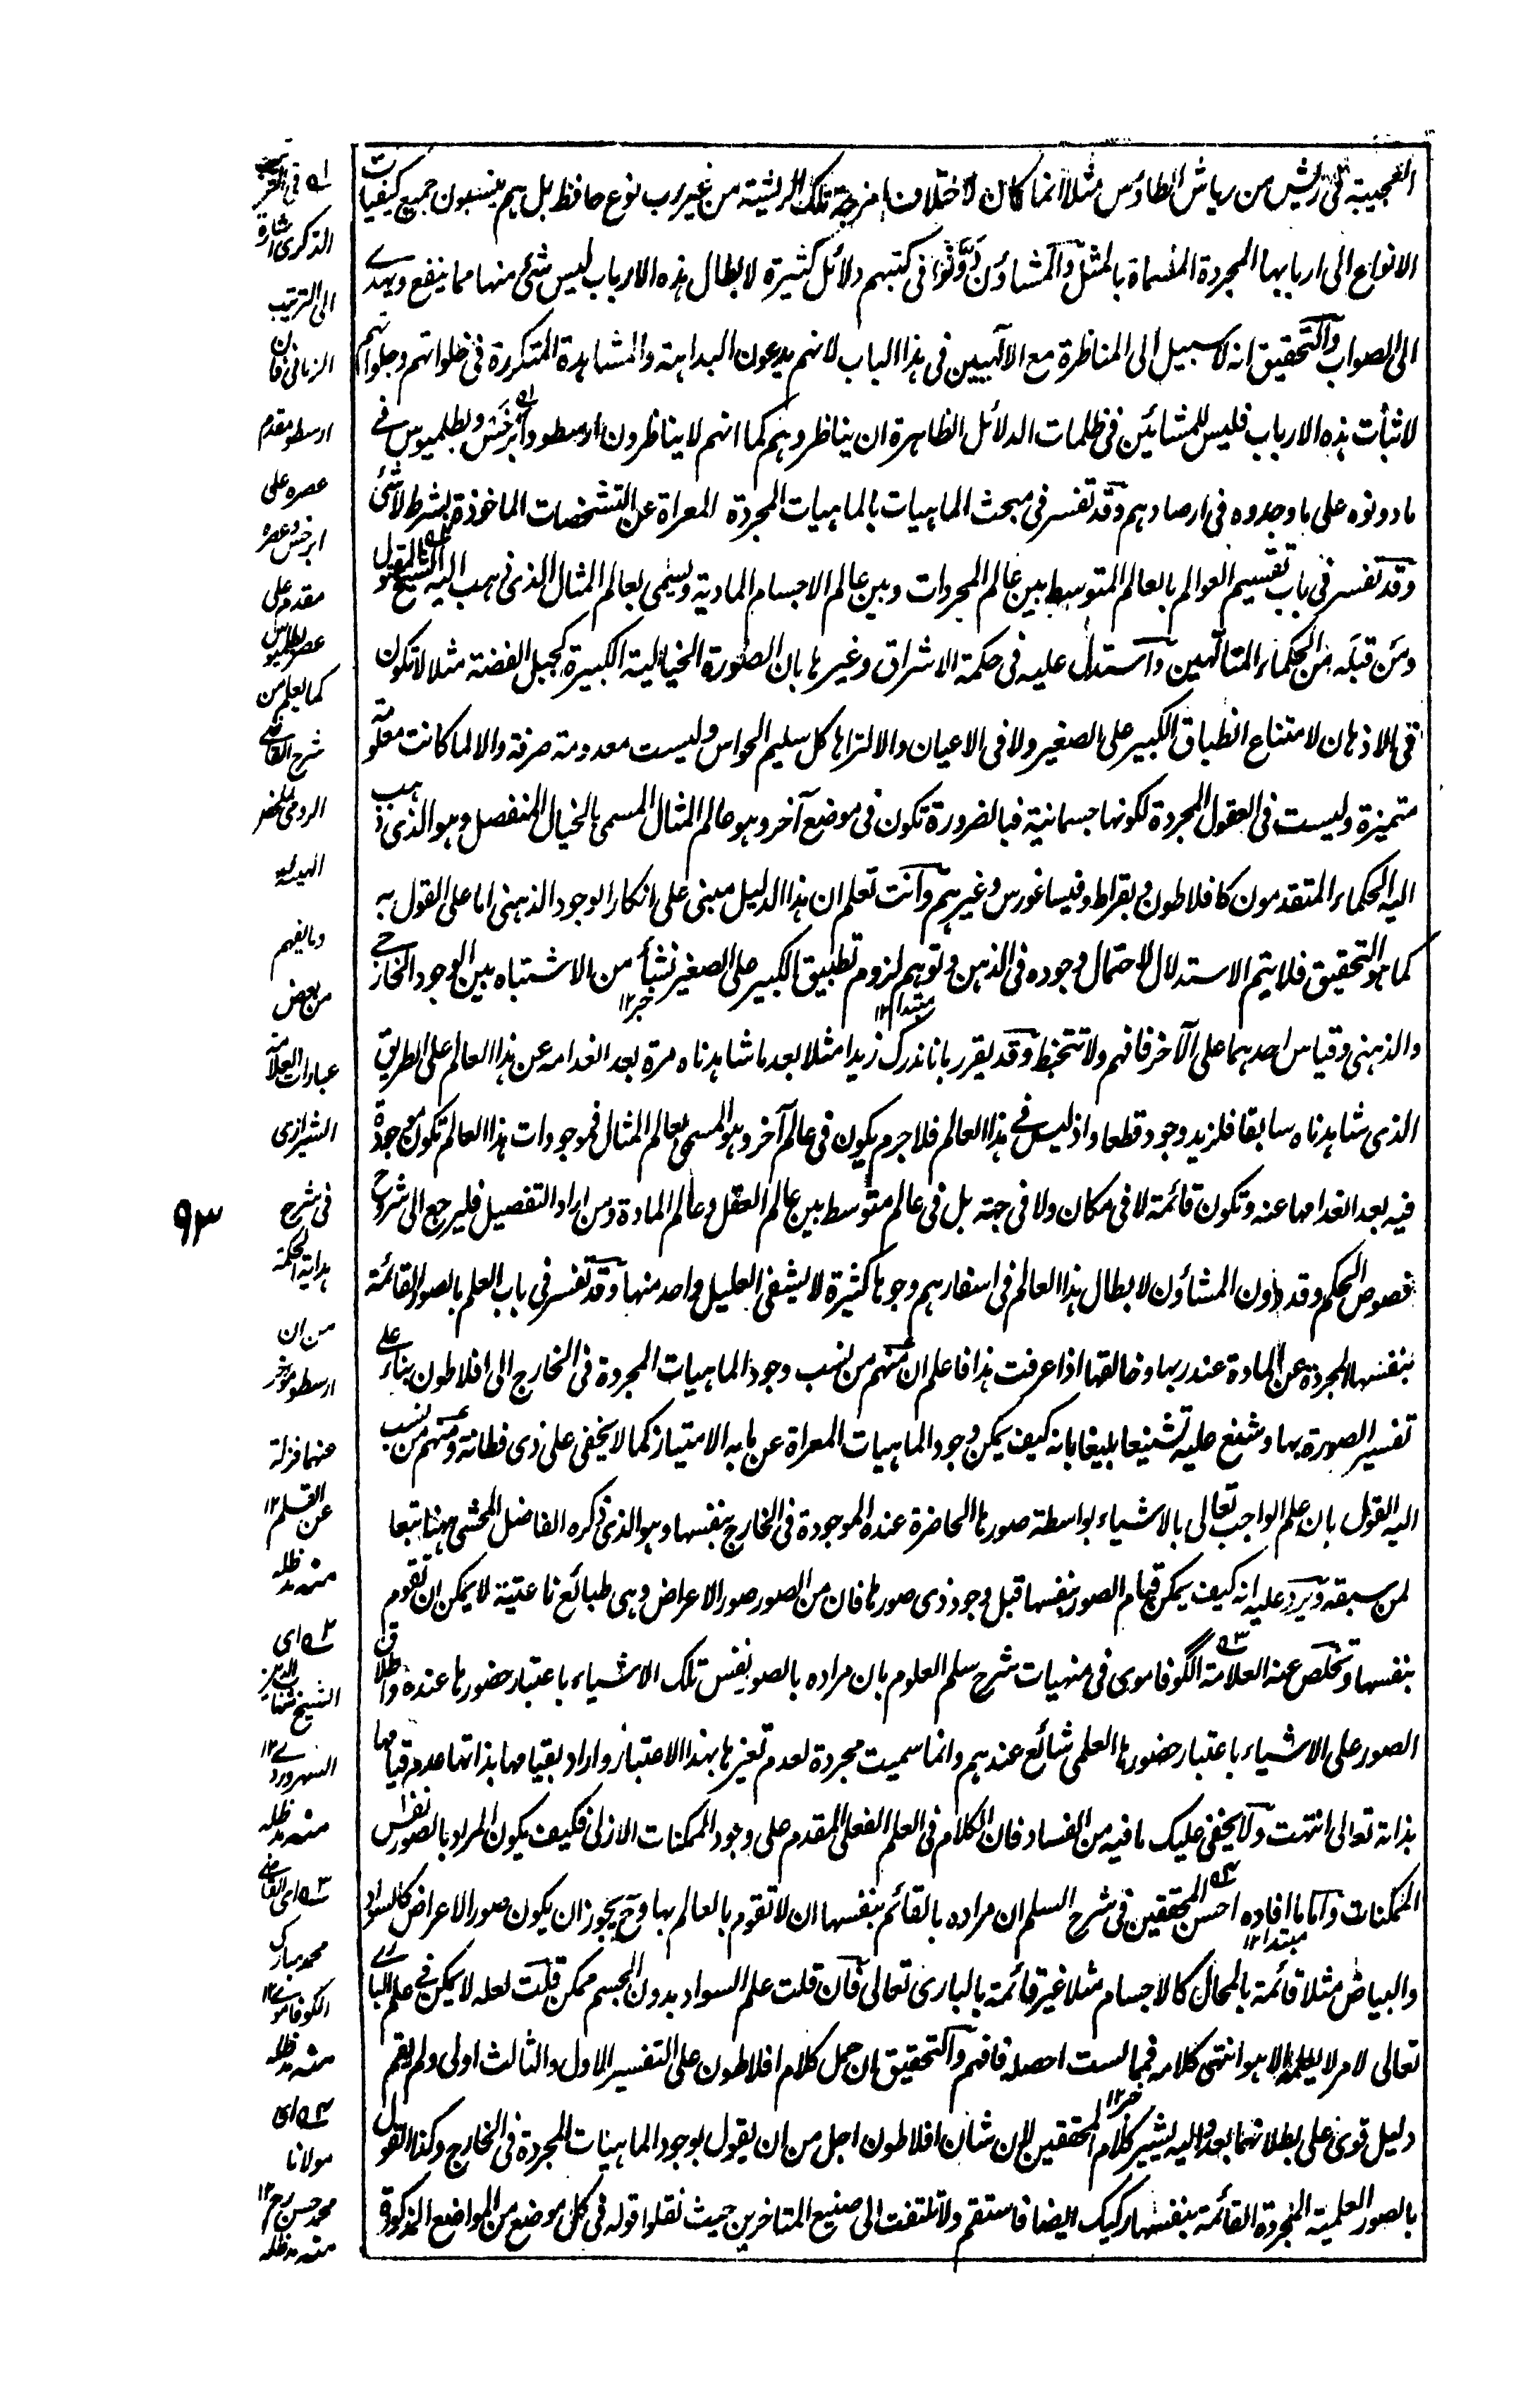 العجيبة فى ريش من رياش الطاؤس مثلا انما كان لاختلاف امزجة تلك الريشية من غير رب نوع حافظ بل هم ينسبون جميع كيفيات
الانواع الى اربابها المجردة المسماة بالمثل والمشاؤن دونوا فى كتبهم دلائل كثيرة لابطال هذه الارباب ليس شئ منها مما ينفع ويهدى
الى الصواب والتحقيق انه لا سبيل الى المناظرة مع الالهيين فى هذا الباب لانهم يدعون البداهة والمشاهدة المتكررة فى خلواتهم وجلواتهم
لاثبات هذه الارباب فليس للمشائين فى ظلمات الدلائل الظاهرة ان يناظروهم كما انهم لا يناظرون ارسطو وابرخس وبطلميوس فى
ما دونوه على ما وجدوه فى ارصادهم وقد تفسر فى مبحث الماهيات بالماهيات المجردة المعراة عن التشخصات الماخوذة بشرط لا شئ
وقد تفسر فى باب تقسيم العوالم بالعالم المتوسط بين عالم المجردات وبين عالم الاجسام المادية ويسمى بعالم المثال الذى ذهب اليه الشيخ المقتول
ومن قبله من الحكماء المتالهين واستدل عليه فى حكمة الاشراق وغيرها بان الصورة الخيالية الكبيرة كجبل الفضة مثلا لا تكون
فى الاذهان لامتناع انطباق الكبير على الصغير ولا فى الاعيان والا لتراها كل سليم الحواس وليست معدومة صرفة والا لما كانت معلومة
متميزة وليست فى العقول المجردة لكونها جسمانية فبالضرورة تكون فى موضع آخر وهو عالم المثال المسمى بالخيال المنفصل وهو الذى ذهب
اليه الحكماء المتقدمون كافلاطون وبقراط وفيساغورس وغيرهم وانت تعلم ان هذا الدليل مبنى على انكار الوجود الذهنى اما على القول به
كما هو التحقيق فلا يتم الاستدلال لاحتمال وجوده فى الذهن وتوهم لزوم تطبيق الكبير على الصغير نشأ من الاشتباه بين الوجود الخارجى
مبتدا ١٢ خبر ١٢
والذهنى وقياس احدهما على الآخر فافهم ولا تتخبط وقد يقرر بانا ندرك زيدا مثلا بعد ما شاهدناه مرة بعد انعدامه عن هذا العالم على الطريق
الذى شاهدناه سابقا فلزيد وجود قطعا واذ ليس فى هذا العالم فلا جرم يكون فى عالم آخر وهو المسمى بعالم المثال فموجودات هذا العالم تكون موجودة
فيه بعد انعدامها عنه وتكون قائمة لا فى مكان ولا فى جهة بل فى عالم متوسط بين عالم العقل وعالم المادة ومن اراد التفصيل فليرجع الى شروح
فصوص الحكم وقد دون المشاؤن لابطال هذا العالم فى اسفارهم وجوها كثيرة لا يشفى العليل واحد منها وقد تفسر فى باب العلم بالصور القائمة
بنفسها المجردة عن المادة عند ربها وخالقها اذا عرفت هذا فاعلم ان منهم من نسب وجود الماهيات المجردة فى الخارج الى افلاطون بناء على
تفسير الصورة بها وشنع عليه تشنيعا بليغا بانه كيف يمكن وجود الماهيات المعراة عن ما به الامتياز كما لا يخفى على ذى فطانة ومنهم من نسب
اليه القول بان علم الواجب تعالى بالاشياء بواسطة صورها الحاضرة عنده الموجودة فى الخارج بنفسها وهو الذى ذكره الفاضل المحشى ههنا تبعا
لمن سبقه ويرد عليه انه كيف يمكن قيام الصور بنفسها قبل وجود ذى صورها فان من الصور صور الاعراض وهى طبائع ناعتية لا يمكن ان تقوم
بنفسها وتخلص عنه العلامة الگوفاموى فى منهيات شرح سلم العلوم بان مراده بالصور نفس تلك الاشياء باعتبار حضورها عنده واطلاق
الصور على الاشياء باعتبار حضورها العلمى شائع عندهم وانما سميت مجردة لعدم تغيرها بهذا الاعتبار واراد بقيامها بذاتها عدم قيامها
بذاته تعالى انتهت ولا يخفى عليك ما فيه من الفساد فان الكلام فى العلم الفعلى المقدم على وجود الممكنات الازلى فكيف يكون المراد بالصور نفس
الممكنات واما ما افاده احسن المحققين فى شرح السلم ان مراده بالقائم بنفسها ان لا تقوم بالعالم بها وح يجوز ان يكون صور الاعراض كالسواد
مبتدا ١٢
والبياض مثلا قائمة بالمحال كالاجسام مثلا غير قائمة بالبارى تعالى فان قلت علم السواد بدون الجسم ممكن قلت لعله لا يمكن فى علم البارى
تعالى لامر لا يعلمه الا هو انتهى كلامه فمما لست احصله فافهم والتحقيق ان حمل كلام افلاطون على التفسير الاول والثالث اولى ولم يقم
خبر ١٢
دليل قوى على بطلانهما بعد واليه يشير كلام المحققين لان شان افلاطون اجل من ان يقول بوجود الماهيات المجردة فى الخارج وكذا القول
بالصور العلمية المجردة القائمة بنفسها ركيك ايضا فاستقم ولا تلتفت الى صنيع المتاخرين حيث نقلوا قوله فى كل موضع من المواضع المذكورة
الذكرى اشارة
الى الترتيب
الزمانى فان
ارسطو مقدم
عصره على
ابرخس وعصره
مقدم على
عصر بطلميوس
كما يعلم من
شرح القاضى
الرومى لملخص
الهيئة
وما يفهم
من بعض
عبارات العلامة
الشيرازى
فى شرح
هداية الحكمة
من ان
ارسطو مؤخر
عنهما فزلة
عن القلم ١٢
منه مد ظله
٢ اى
الشيخ شهاب الدين
السهروردى ١٢
منه مد ظله
٣ اى القاضى
محمد مبارك
الگوفاموى ١٢
منه مد ظله
٤ اى
مولانا
محمد حسن رح ١٢
منه مد ظله
٩٣